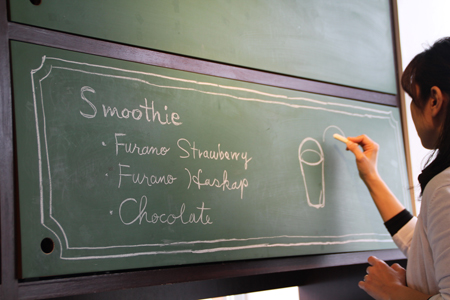 Smoothie
· Furano Strawbawy
· Furano Haskap
· Chocolate